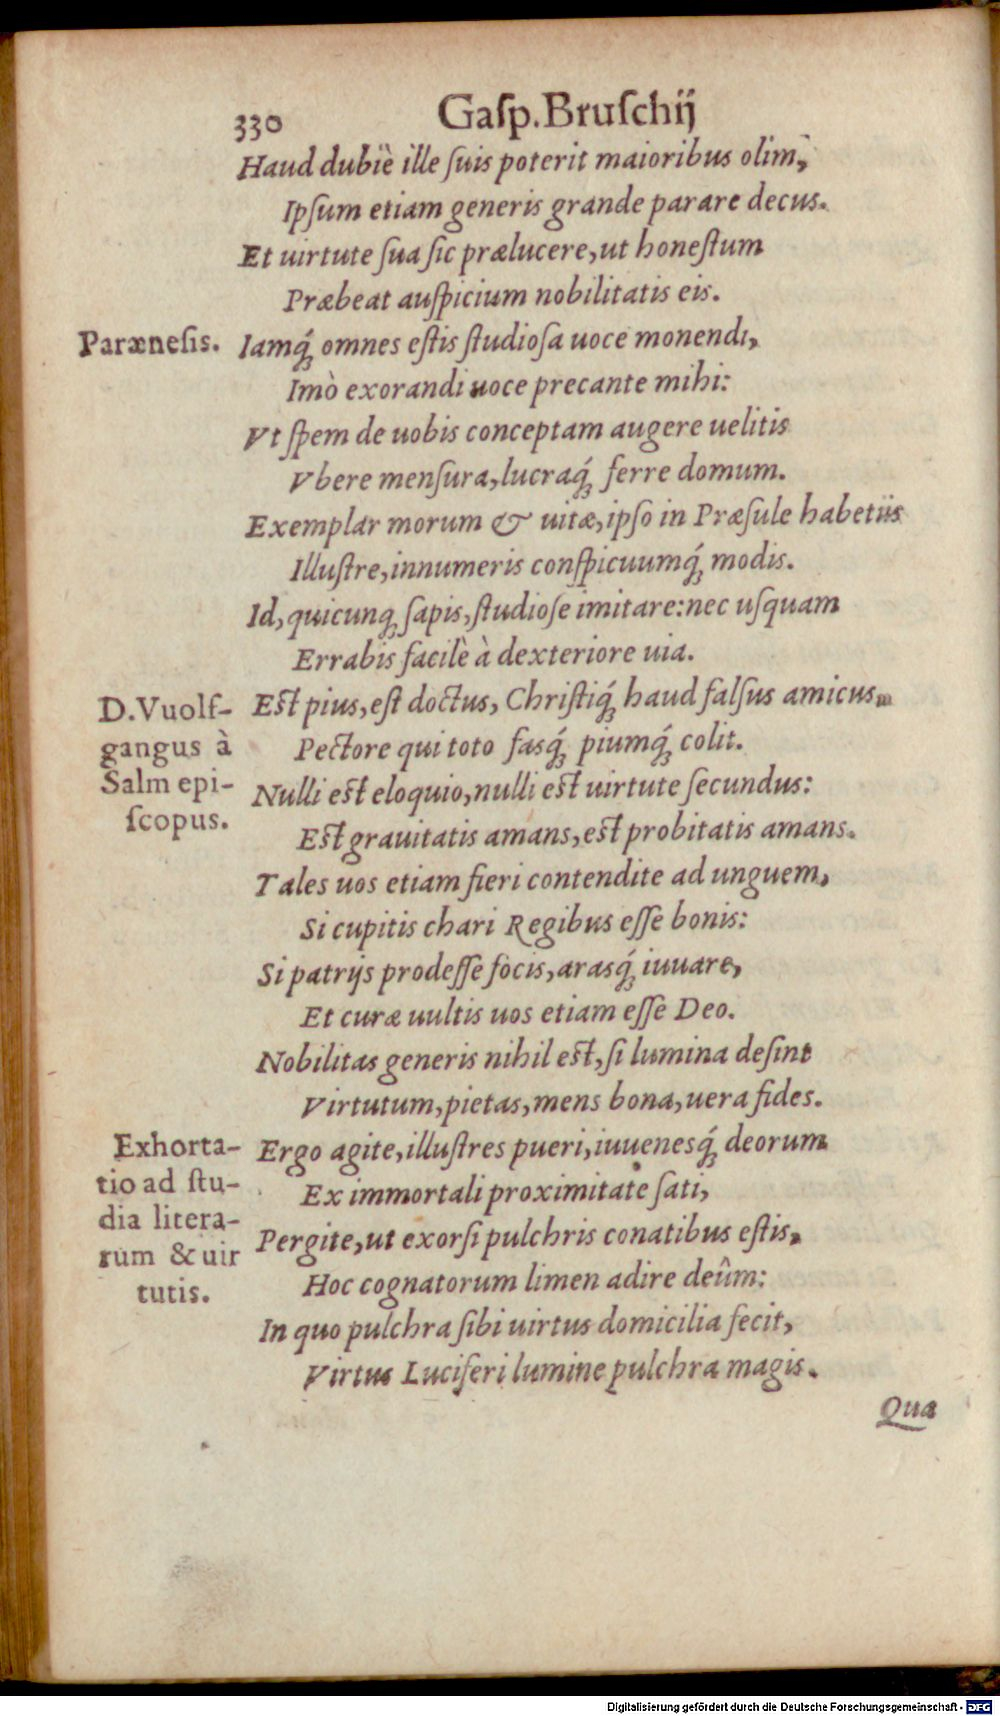 330 Gaſp. Bruſchij
Haud dubiè ille ſuis poterit maioribus olim,
Ipſum etiam generis grande parare decus.
Et uirtute ſua ſic prælucere, ut honeſtum
Præbeat auſpicium nobilitatis eis.
Parænefis. Iamq́; omnes eſtis ſtudioſa uoce monendi,
Imò exorandi uoce precante mihi:
Vt ſpem de uobis conceptam augere uelitis
Vbere menſura, lucraq́; ferre domum.
Exemplar morum & uitæ, ipſo in Præſule habetiis
Illuſtre, innumeris conſpicuumq́; modis.
Id, quicunq; ſapis, ſtudioſe imitare: nec uſquam
Errabis facilè à dexteriore uia.
D. Vuolf-
gangus à
Salm epi-
ſcopus.
Eſt pius, eſt doctus, Chriſtiq́; haud falſus amicus,
Pectore qui toto faſq́; piumq́; colit.
Nulli eſt eloquio, nulli eſt uirtute ſecundus:
Eſt grauitatis amans, eſt probitatis amans.
Tales uos etiam fieri contendite ad unguem,
Si cupitis chari Regibus eſſe bonis:
Si patrijs prodeſſe focis, arasq́; iuuare,
Et curæ uultis uos etiam eſſe Deo.
Nobilitas generis nihil eſt, ſi lumina deſint
Virtutum, pietas, mens bona, uera fides.
Exhorta-
tio ad ſtu-
dia litera-
rum & uir
tutis.
Ergo agite, illuſtres pueri, iuuenesq́; deorum
Ex immortali proximitate ſati,
Pergite, ut exorſi pulchris conatibus eſtis,
Hoc cognatorum limen adire deûm:
In quo pulchra ſibi uirtus domicilia fecit,
Virtus Luciferi lumine pulchra magis.
Qua
Digitalisierung gefördert durch die Deutsche Forschungsgemeinschaft - DFG